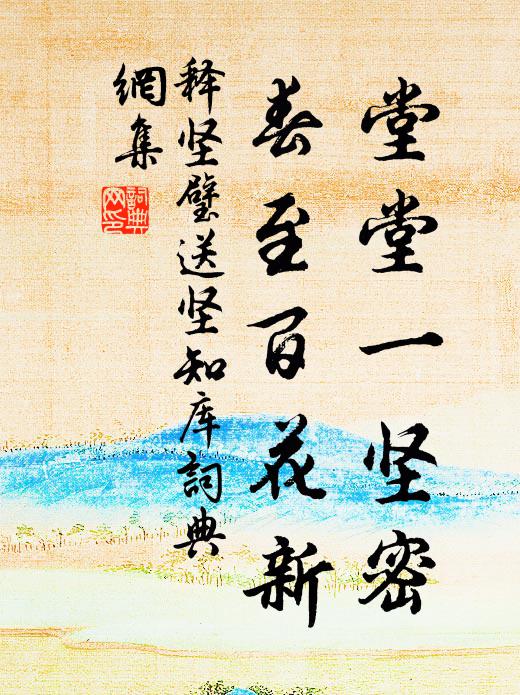 堂堂一坚密
春至百花新
释坚璧送坚知库词典
網集
詞典
网印